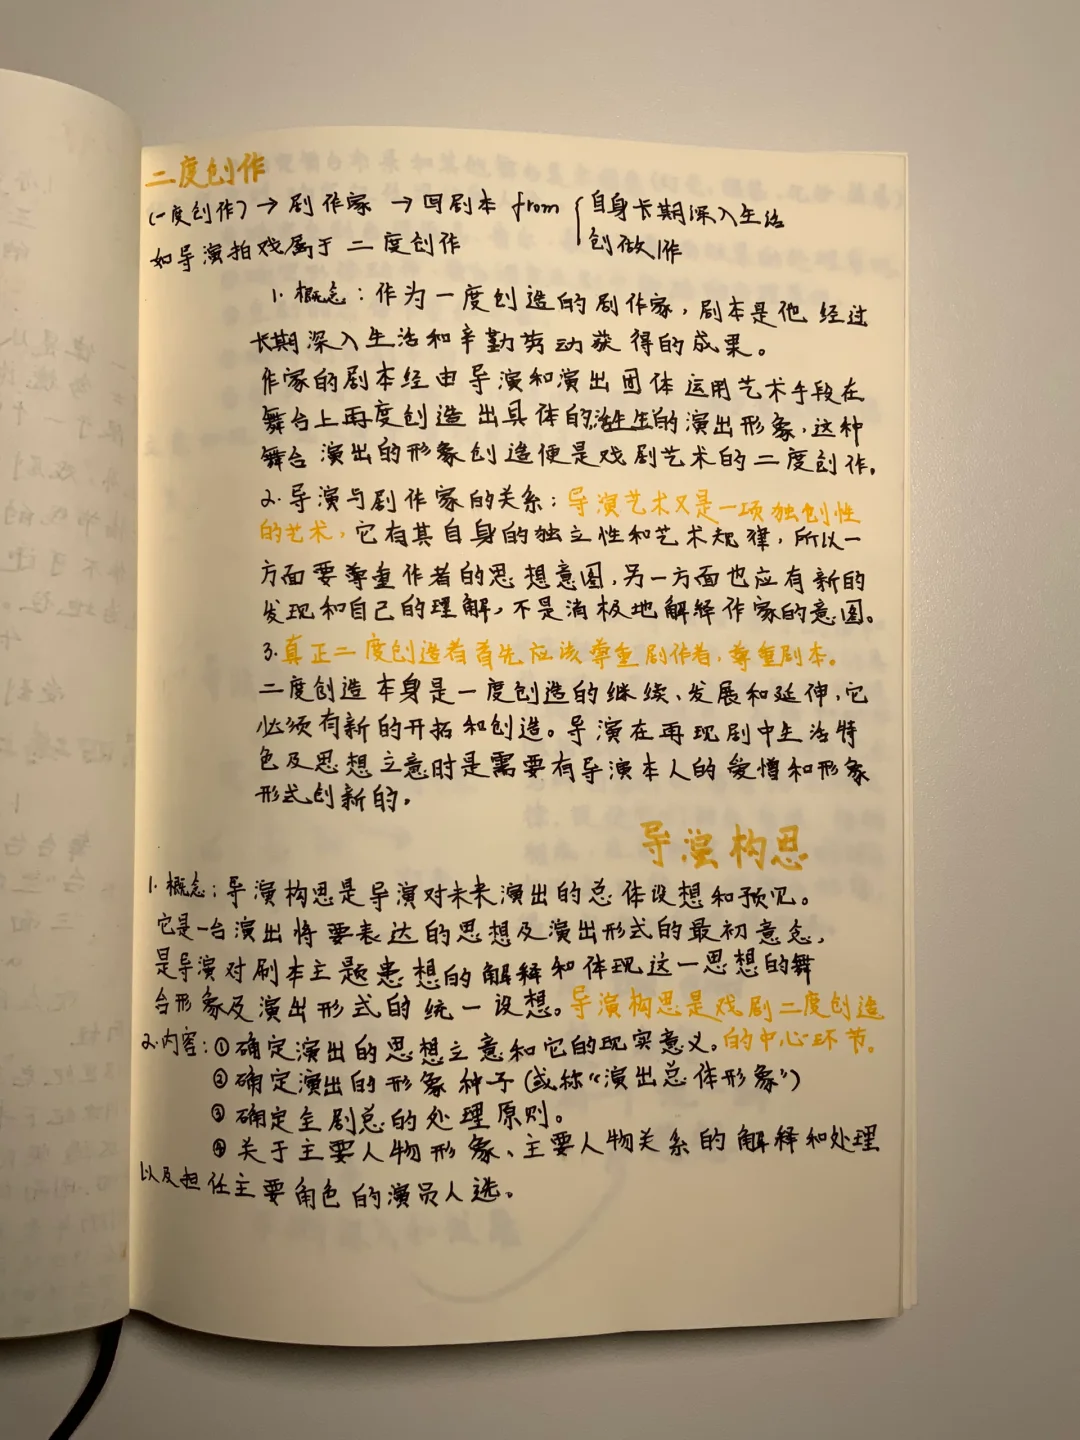 二度创作
(一度创作) → 剧作家 → 写剧本 from { 自身长期深入生活
创做作
如导演拍戏属于二度创作
1. 概念：作为一度创造的剧作家，剧本是他经过
长期深入生活和辛勤劳动获得的成果。
作家的剧本经由导演和演出团体运用艺术手段在
舞台上再度创造出具体的活生生的演出形象，这种
舞台演出的形象创造便是戏剧艺术的二度创作。
2. 导演与剧作家的关系：导演艺术又是一项独创性
的艺术，它有其自身的独立性和艺术规律，所以一
方面要尊重作者的思想意图，另一方面也应有新的
发现和自己的理解，不是消极地解释作家的意图。
3. 真正二度创造者首先应该尊重剧作者，尊重剧本。
二度创造本身是一度创造的继续、发展和延伸，它
必须有新的开拓和创造。导演在再现剧中生活特
色及思想立意时是需要有导演本人的爱憎和形象
形式创新的。
导演构思
1. 概念：导演构思是导演对未来演出的总体设想和预见。
它是一台演出将要表达的思想及演出形式的最初意念，
是导演对剧本主题思想的解释和体现这一思想的舞
台形象及演出形式的统一设想。导演构思是戏剧二度创造
的中心环节。
2. 内容：①确定演出的思想立意和它的现实意义。
②确定演出的形象种子（或称“演出总体形象”）
③确定全剧总的处理原则。
④关于主要人物形象、主要人物关系的解释和处理
以及担任主要角色的演员人选。